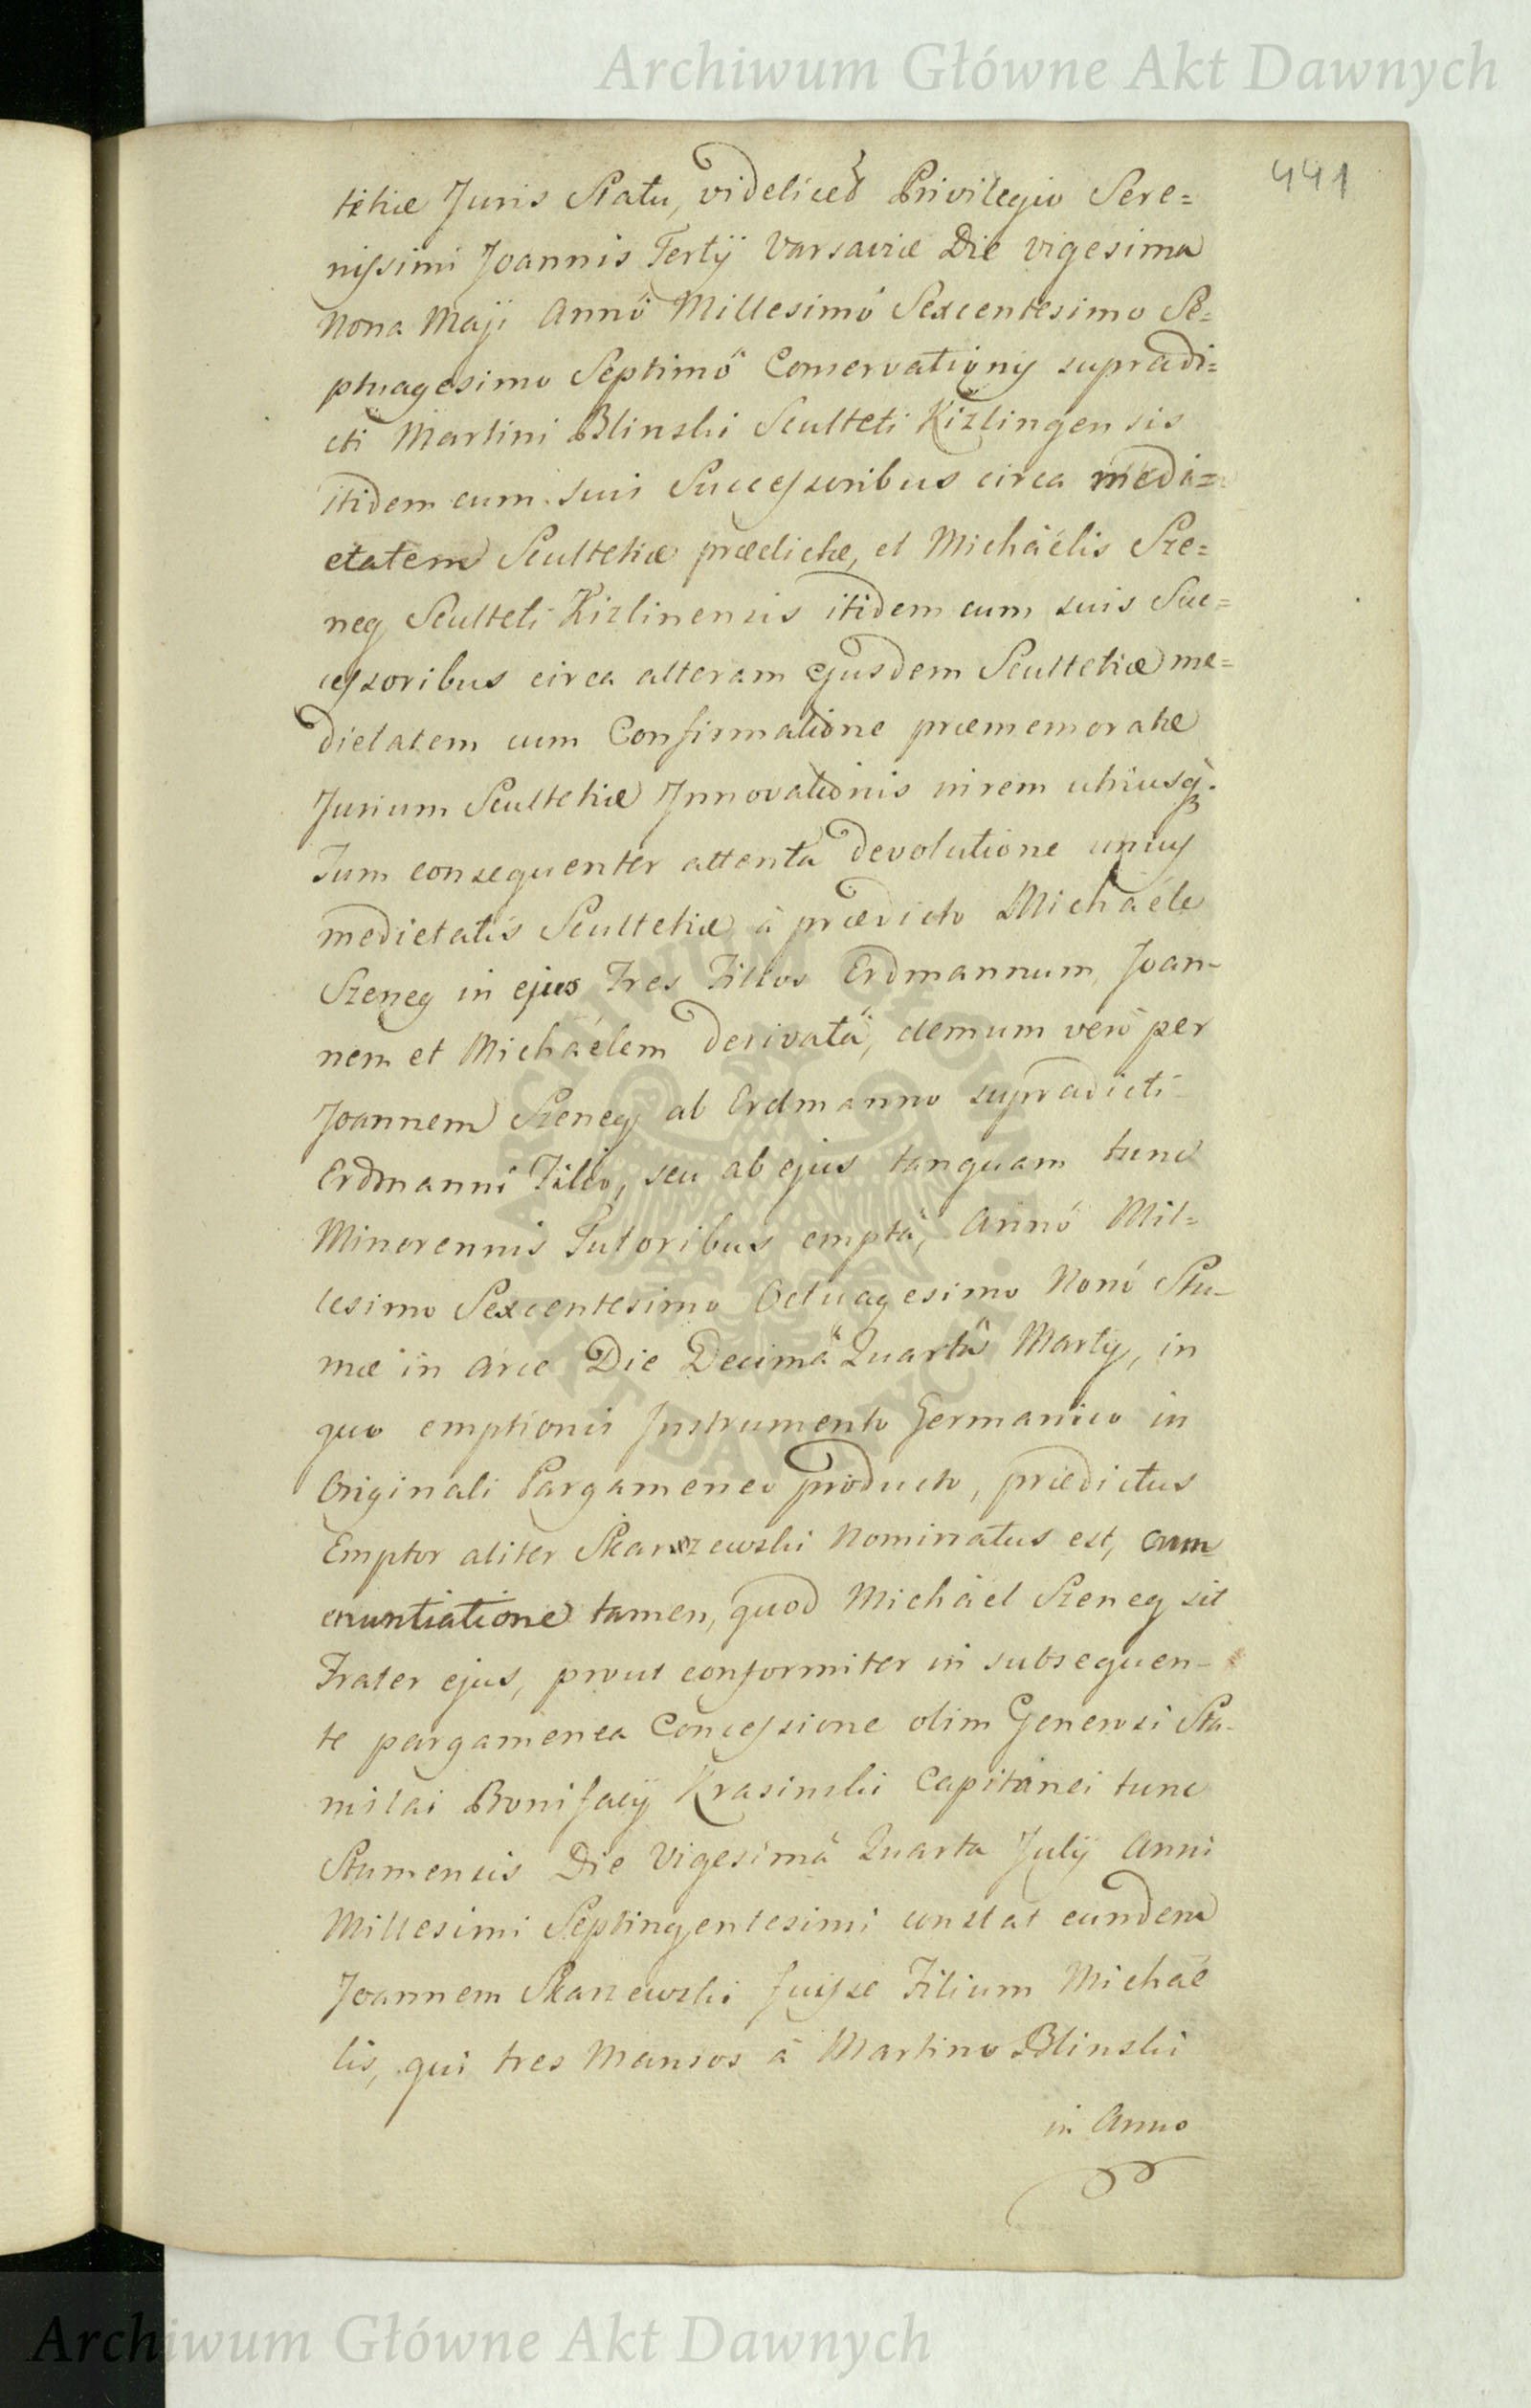 Archiwum Główne Akt Dawnych
441
tetiæ Juris Statu, videlicet Privilegio Sere=
nissimi Joannis Tertij Varsaviæ Die vigesima
Nona Maji Annô Millesimô Sexcentesimo Se=
ptuagesimo Septimô Conservationis supradi=
cti Martini Blinski Sculteti Kizlingensis
itidem cum suis Successoribus circa medi=
etatem Scultetiæ prædictæ, et Michaëlis Sze=
neg Sculteti Kizlinensis itidem cum suis Suc=
cessoribus circa alteram ejusdem Scultetiæ me=
dietatem cum Confirmatione præmemoratæ
Jurium Scultetiæ Innovationis in rem utriusq.
Tum consequenter attentâ devolutione unius
medietatis Scultetiæ à prædicto Michaéle
Szeneg in ejus Tres Filios Erdmannum, Joan-
nem et Michaélem derivatâ, demum verò per
Joannem Szeneg ab Erdmanno supradicti
Erdmanni Filio, seu ab ejus tanquam tunc
Minorennis Tutoribus emptâ, Annô Mil=
lesimo Sexcentesimo Octuagesimo Nonô Stu-
mæ in Arce Die Decimâ Quartâ Martij, in
quo emptionis Instrumento Germanico in
Originali Pargameneo producto, prædictus
Emptor aliter Skarszewski Nominatus est, cum
enuntiatione tamen, quod Michäel Szeneg sit
Frater ejus, prout conformiter in subsequen-
te pargamenea Concessione olim Generosi Sta-
nislai Bonifacij Krasinski Capitanei tunc
Stumensis Die Vigesimâ Quarta Julij Anni
Millesimi Septingentesimi constat eundem
Joannem Skarzewski fuisse Filium Michae
lis, qui tres Mansos à Martino Blinski
in Anno
Archiwum Główne Akt Dawnych